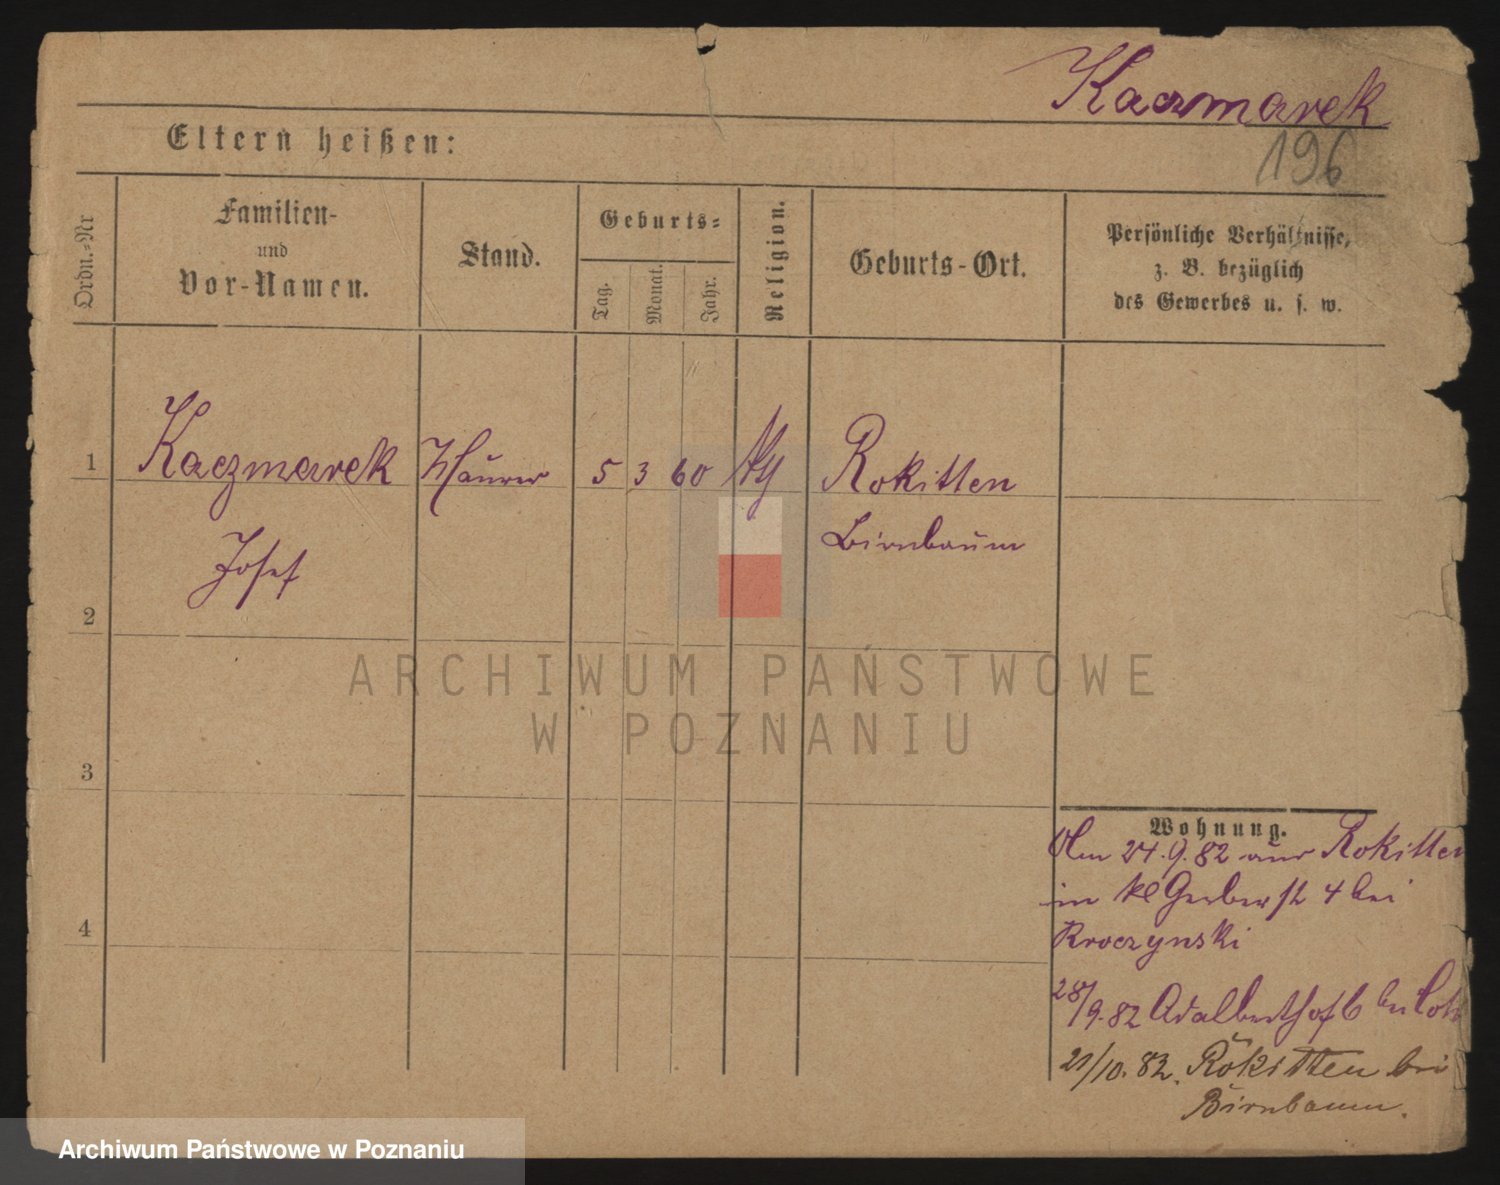 Kaczmarek
196
Eltern heißen:
Ordn.=Nr
Familien-
und
Vor-Namen.
Stand.
Geburts=
Tag.
Monat.
Jahr.
Religion.
Geburts-Ort.
Persönliche Verhältnisse,
z. B. bezüglich
des Gewerbes u. s. w.
1
Kaczmarek
Maurer
5
3
60
Rokitten
Birnbaum
Josef
2
3
4
Wohnung.
Am 24.9.82 aus Rokitten
in kl Gerberst 4 bei
Kroczynski
28/9.82 Adalberthof 6 bei
21/10.82. Rokitten bei
Birnbaum.
ARCHIWUM PAŃSTWOWE
W POZNANIU
Archiwum Państwowe w Poznaniu